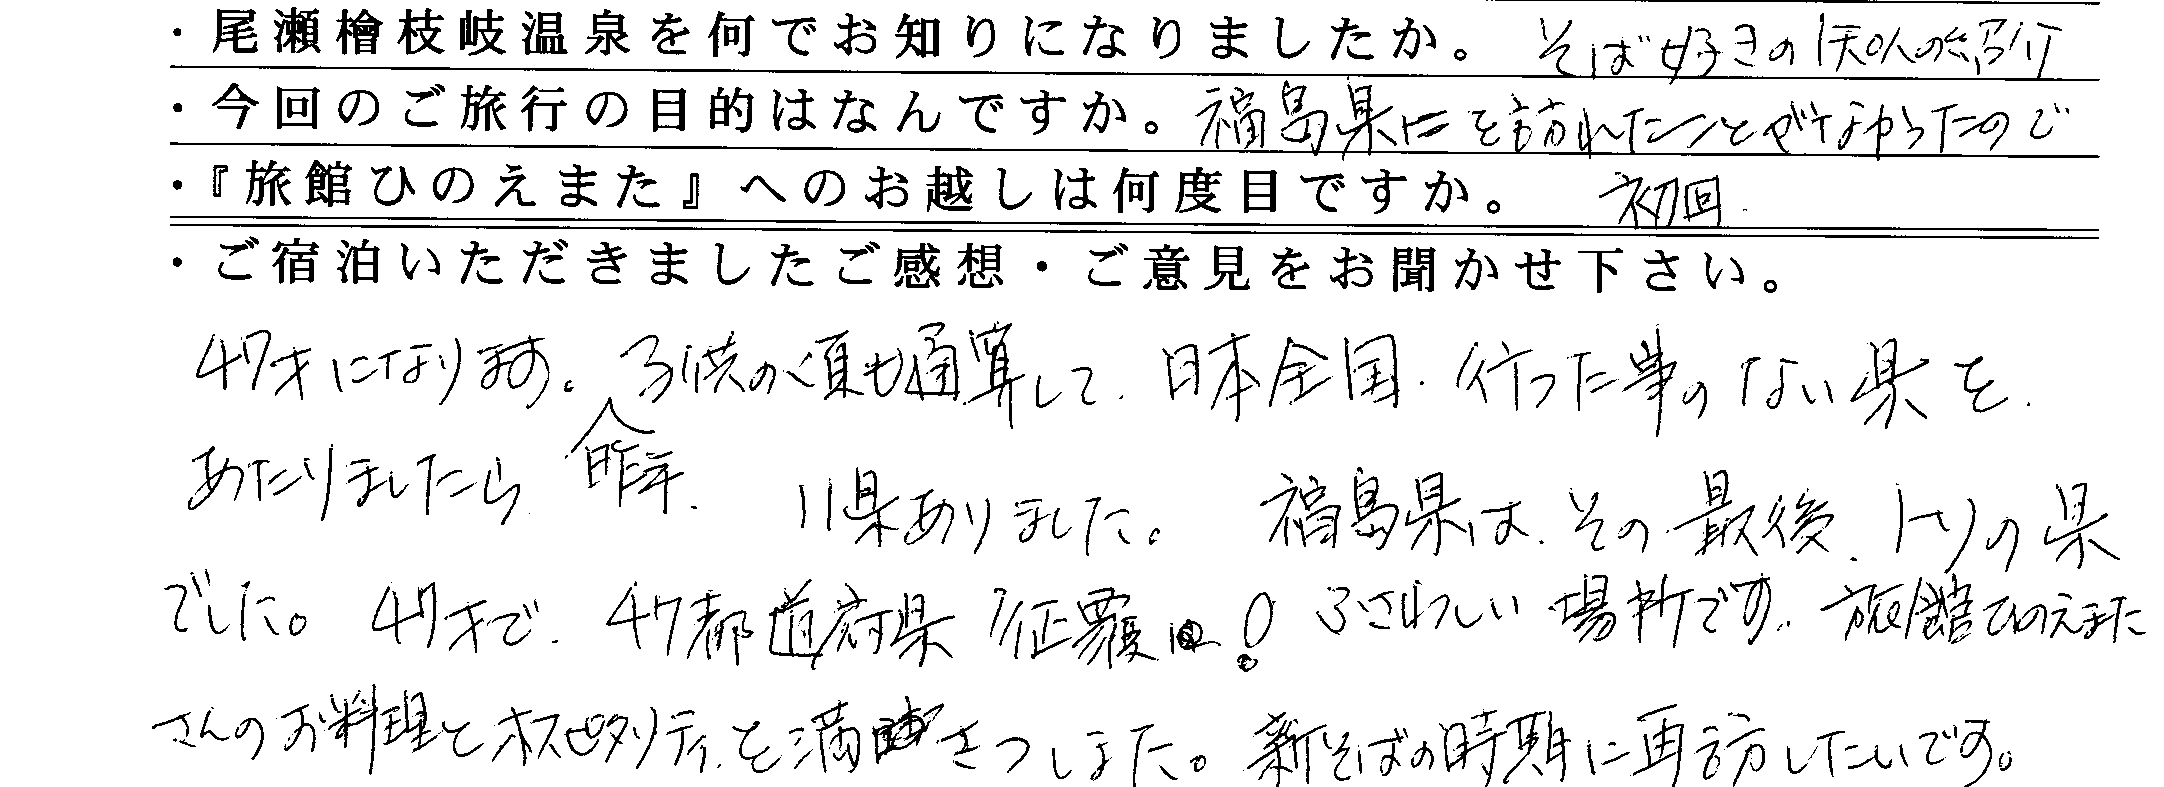 ・尾瀬檜枝岐温泉を何でお知りになりましたか。 そば好きの知人の紹介
・今回のご旅行の目的はなんですか。福島県にを訪れたことがなかったので
・『旅館ひのえまた』へのお越しは何度目ですか。 初回.
・ご宿泊いただきましたご感想・ご意見をお聞かせ下さい。
47才になります。子供の頃も通算して、日本全国、行った事のない県を、
あたりましたら 昨年、 11県ありました。 福島県は、その最後、トリの県
でした。 47才で、47都道府県 征覇! ふさわしい場所です。旅館ひのえまた
さんのお料理とホスピタリティを満 きつしました。新そばの時期に再訪したいです。